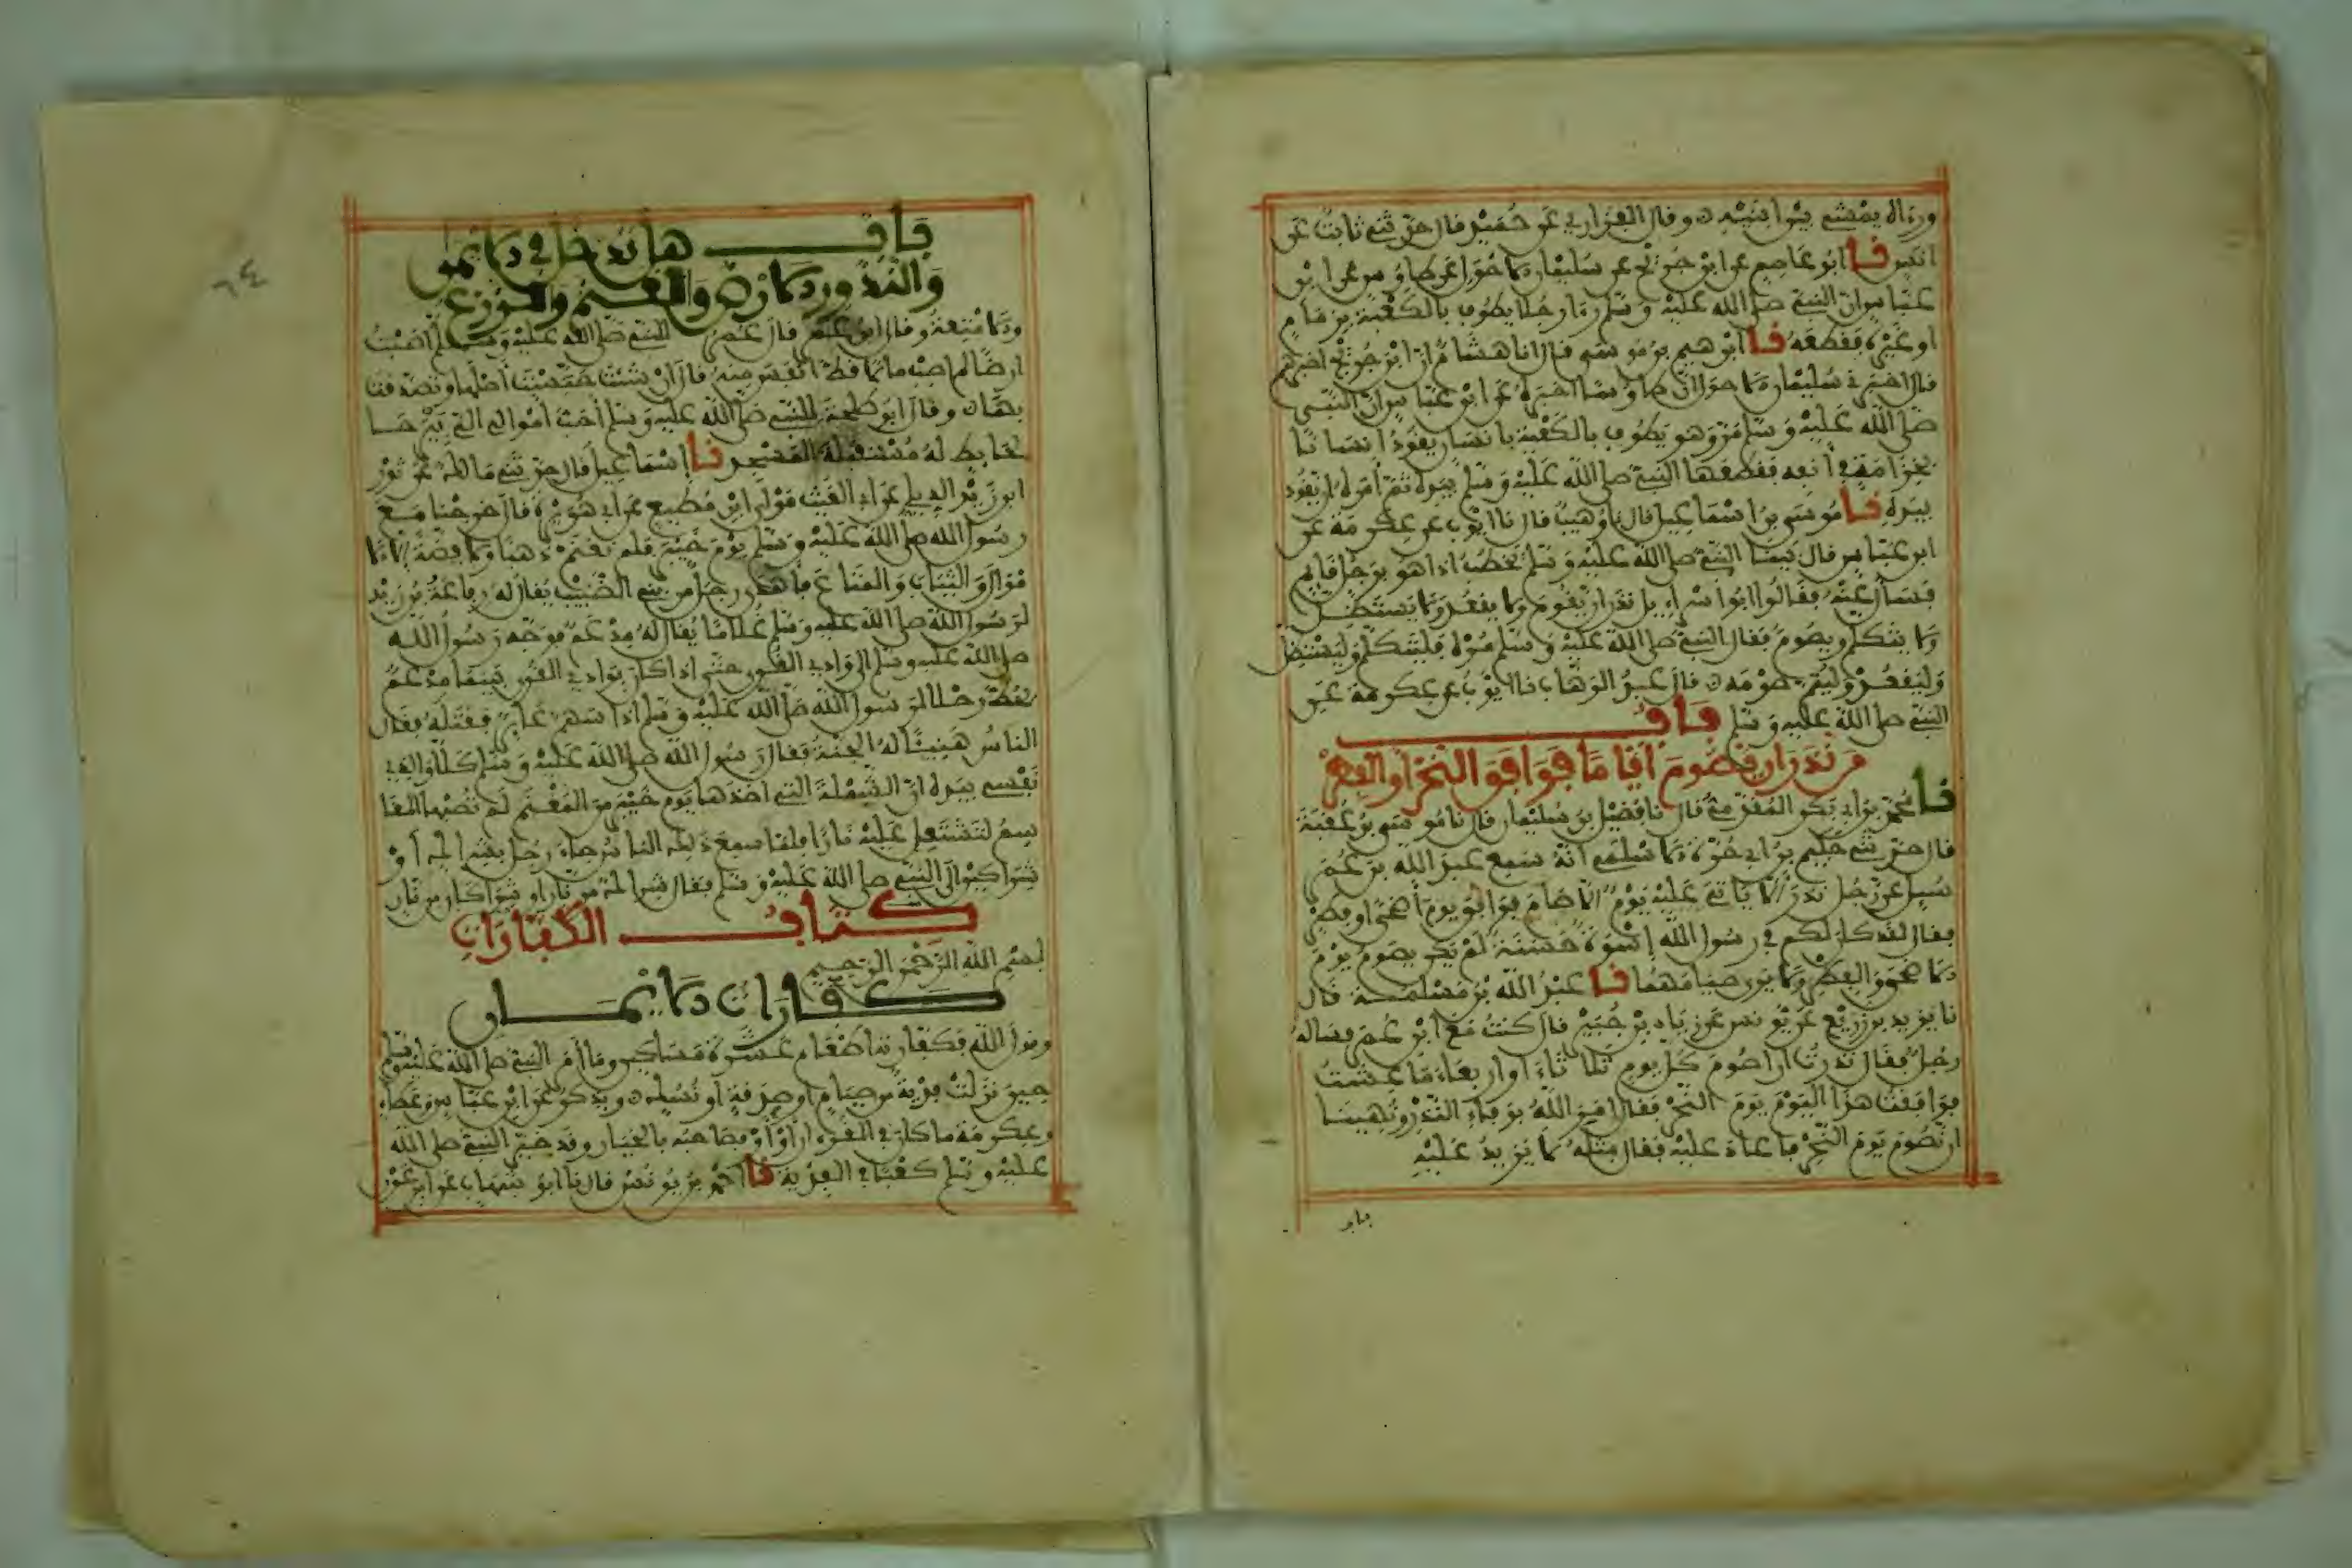 ورءاه يمشي بين ابنيه وقال الفزاري عن حميد قال حدثني ثابت عن
انس نا ابو عاصم عن ابن جريج عن سليمان الاحول عن طاوس عن ابن
عباس ان النبي صلى الله عليه وسلم رءا رجلا يطوف بالكعبة بزمام
او غيره فقطعه نا ابرهيم بن موسى قال انا هشام ان ابن جريج اخبرهم
قال اخبرني سليمان الاحول ان طاوسا اخبره عن ابن عباس ان النبي
صلى الله عليه وسلم مر وهو يطوف بالكعبة بانسان يقود انسانا
بخزامة في أنفه فقطعها النبي صلى الله عليه وسلم بيده ثم أمره ان يقوده
بيده نا موسى بن اسماعيل قال نا وهيب قال نا ايوب عن عكرمة عن
ابن عباس قال بينا النبي صلى الله عليه وسلم يخطب اذا هو برجل قايم
فسأل عنه فقالوا ابو اسراءيل نذر ان يقوم ولا يقعد ولا يستظل
ولا يتكلم ويصوم فقال النبي صلى الله عليه وسلم مره فليتكلم وليستظل
وليقعد وليتم صومه قال عبد الوهاب نا ايوب عن عكرمة عن
النبي صلى الله عليه وسلم باب
من نذر ان يصوم اياما فوافق النحر او الفطر
نا محمد بن ابي بكر المقدمي قال نا فضيل بن سليمان قال نا موسى بن عقبة
قال حدثني حكيم بن ابي حرة الاسلمي انه سمع عبد الله بن عمر
سيل عن رجل نذر الا ياتي عليه يوم الا صام فوافق يوم أضحى او فطر
فقال لقد كان لكم في رسول الله إسوة حسنة لم يكن يصوم يوم
الاضحى والفطر ولا يرى صيامهما نا عبد الله بن مسلمة قال
نا يزيد بن زريع عن يونس عن زياد بن جبير قال كنت مع ابن عمر فساله
رجل فقال نذرت ان اصوم كل يوم ثلاثاء او اربعاء ما عشت
فوافقت هذا اليوم يوم النحر فقال امر الله بوفاء النذر ونهينا
ان نصوم يوم النحر فاعاد عليه فقال مثله لا يزيد عليه
باب
٦٤
باب هل يدخل في الايمان
والنذور الارض والغنم والزرع
والامتعة وقال ابن عمر قال عمر للنبي صلى الله عليه وسلم أصبت
ارضا لم اصب مالا قط انفس منه قال ان شيت حبست أصلها وتصدقت
بها وقال ابو طلحة للنبي صلى الله عليه وسلم أحب أموالي الي بيرحا
لحايط له مستقبلة المسجد نا إسماعيل قال حدثني مالك عن ثور
ابن زيد الديلي عن ابي الغيث مولى ابن مطيع عن ابي هريرة قال خرجنا مع
رسول الله صلى الله عليه وسلم يوم خيبر فلم نغنم ذهبا ولا فضة إلا الا
موال والثياب والمتاع فأهدى رجل من بني الضبيب يقال له رفاعة بن زيد
لرسول الله صلى الله عليه وسلم غلاما يقال له مدعم فوجه رسول الله
صلى الله عليه وسلم الى وادي القرى حتى اذا كان بوادي القرى بينما مدعم
يحط رحلا لرسول الله صلى الله عليه وسلم اذا سهم عاير فقتله فقال
الناس هنيئا له الجنة فقال رسول الله صلى الله عليه وسلم كلا والذي
نفسي بيده ان الشملة التي اخذها يوم خيبر من المغنم لم تصبها المقا
سم لتشتعل عليه نارا فلما سمع ذلك الناس جاء رجل بشراك أو
شراكين الى النبي صلى الله عليه وسلم فقال شراك من نار او شراكان من نار
كتاب الكفارات
بسم الله الرحمن الرحيم
كفارات الايمان
وقول الله فكفارته اطعام عشرة مساكين وما أمر النبي صلى الله عليه وسلم
حين نزلت ففدية من صيام او صدقة او نسك ويذكر عن ابن عباس وعطاء
وعكرمة ما كان في القرءان أو أو فصاحبه بالخيار وقد خير النبي صلى الله
عليه وسلم كعبا في الفدية نا احمد بن يونس قال نا ابو شهاب عن ابن عون